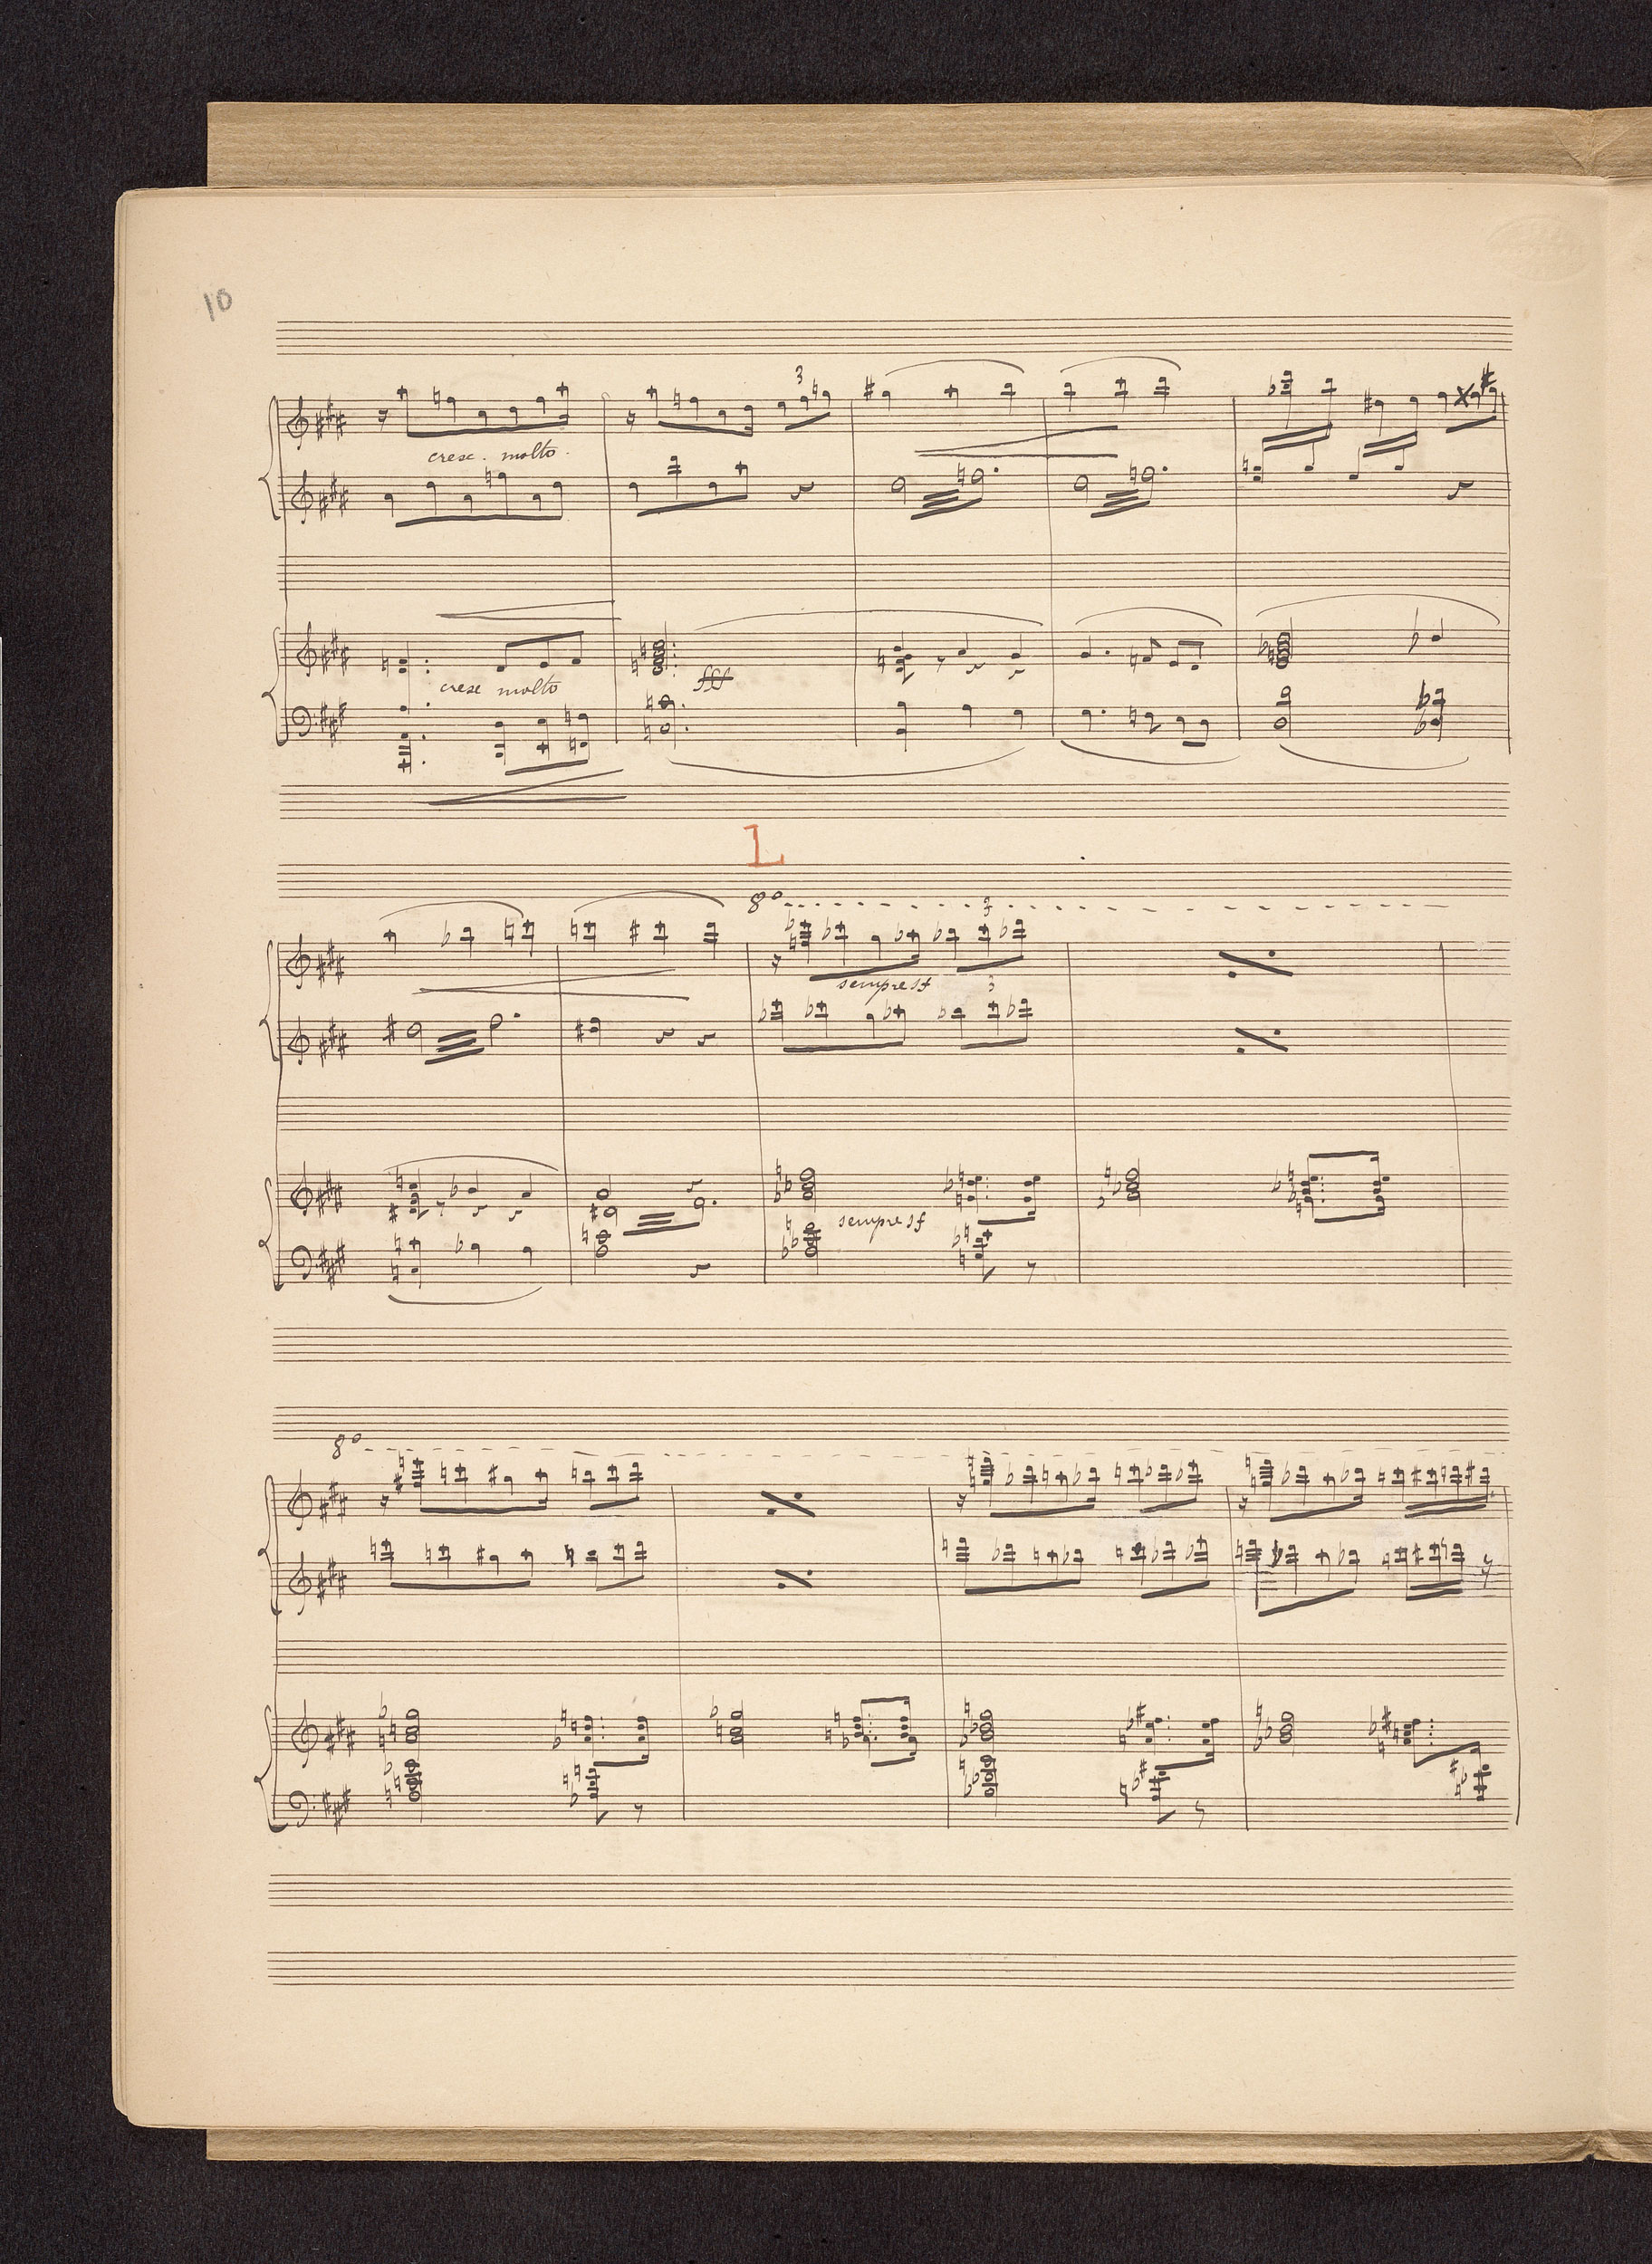 10
3
cresc. molto.
cresc molto
fff
L
8º
3
sempre sf
3
sempre sf
8º